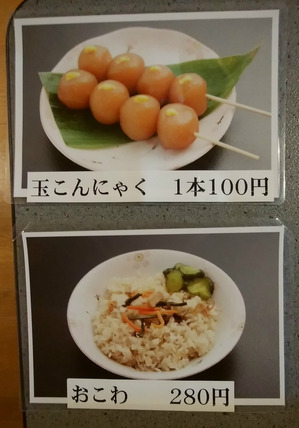 玉こんにゃく　1本100円
おこわ　280円